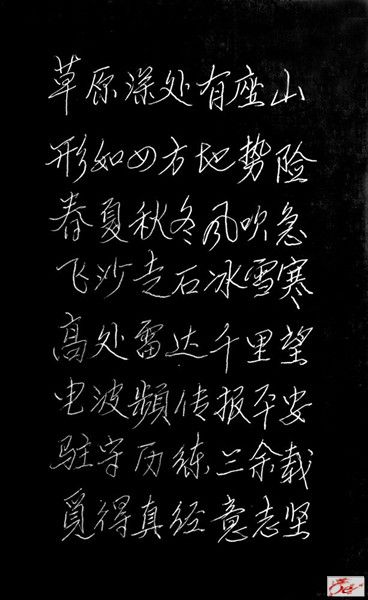 草原深处有座山
形如四方地势险
春夏秋冬风吹急
飞沙走石冰雪寒
高处雷达千里望
电波頻传报平安
驻守历练三余载
觅得真经意志坚